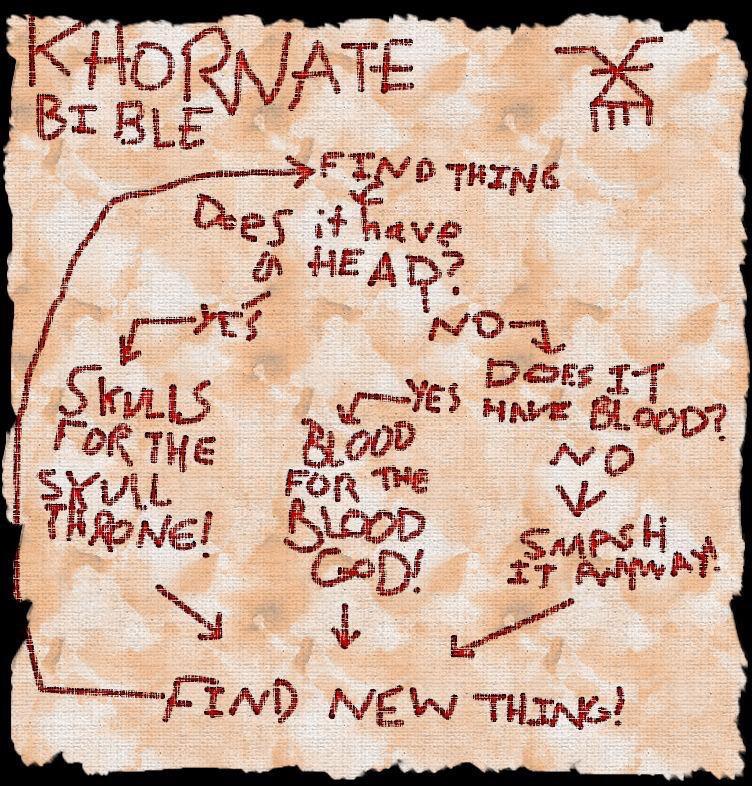 KHORNATE
BIBLE
FIND THING
Does it have
a HEAD?
YES
NO
SKULLS
FOR THE
SKULL
THRONE!
YES
BLOOD
FOR THE
BLOOD
GOD!
DOES IT
HAVE BLOOD?
NO
SMASH
IT ANYWAY!
FIND NEW THING!